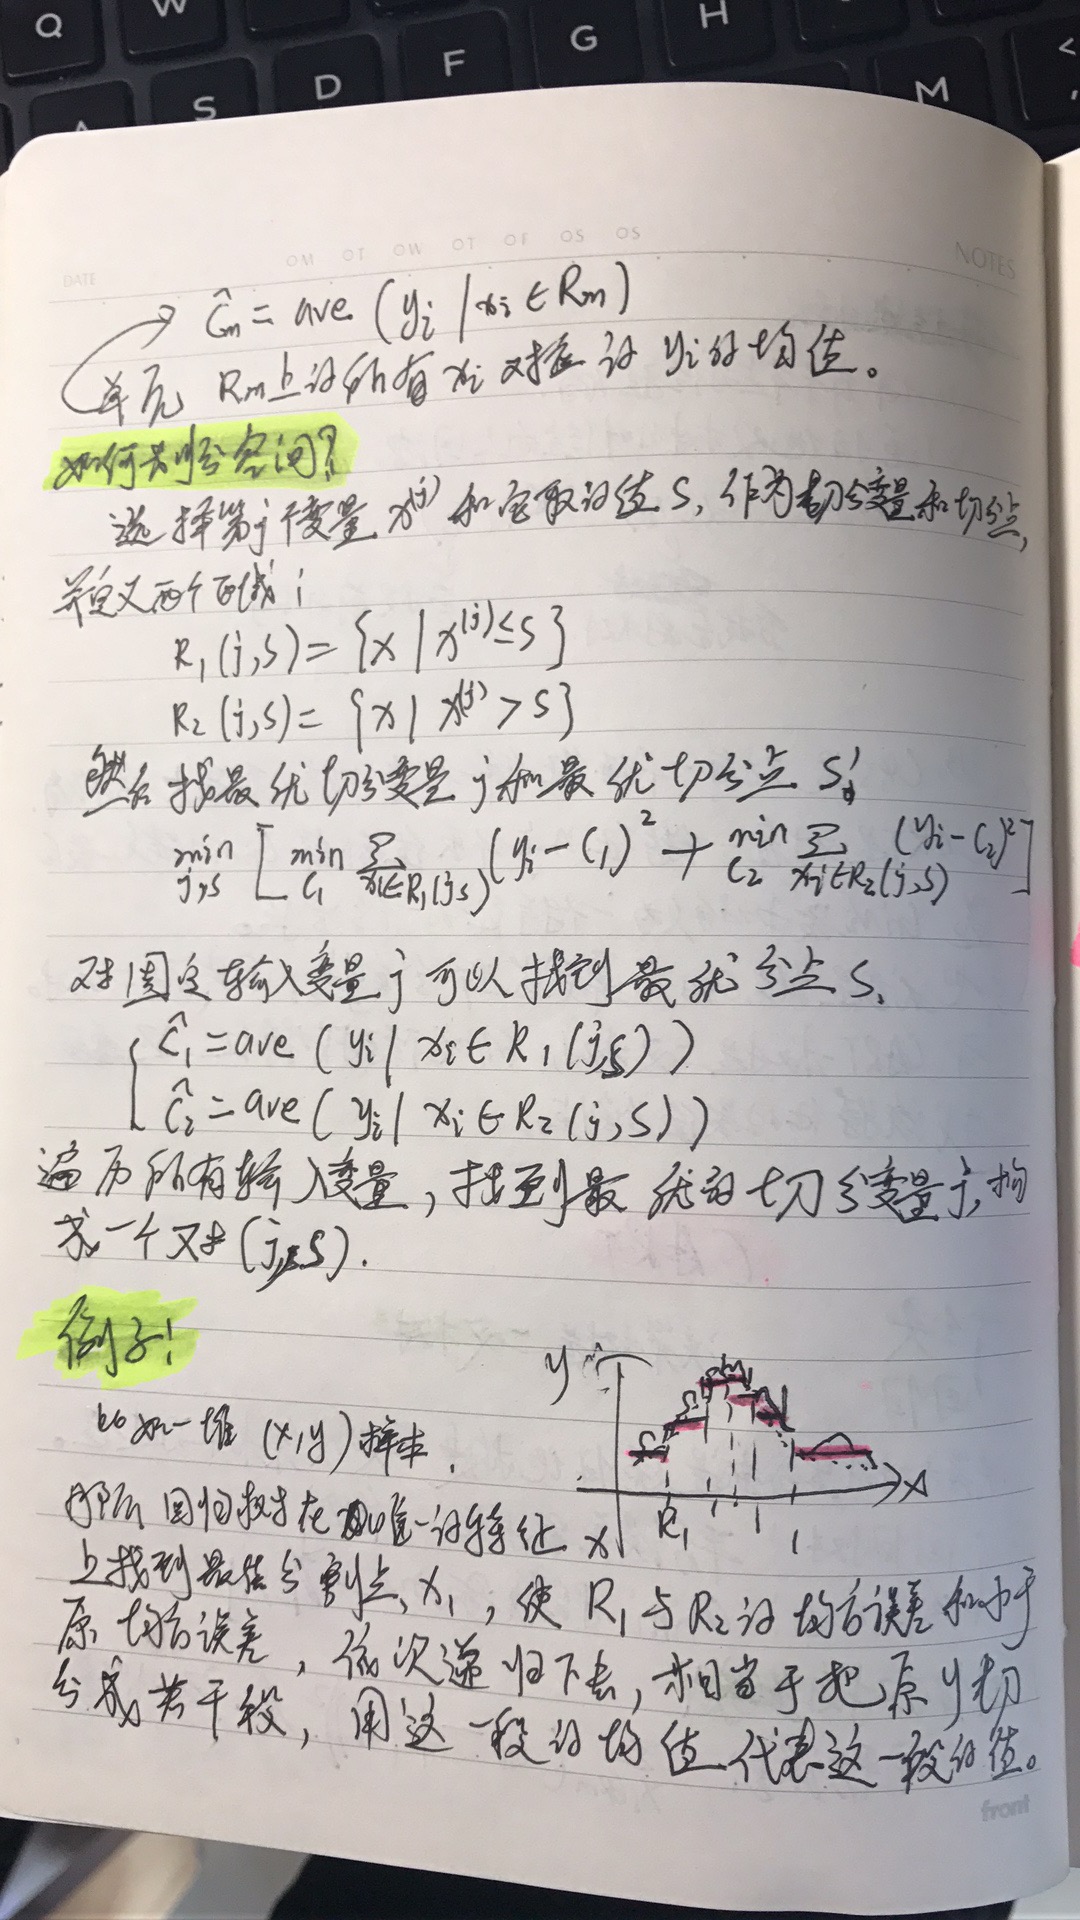 Q W
A S D F G H M <
DATE
NOTES
ĉm = ave (yi | xi ∈ Rm)
单元 Rm上的所有 xi 对应的 yi的均值。
如何划分空间?
选择第j个变量 x^(j) 和它取的值 s, 作为切分变量和切分点,
并定义两个区域:
R1(j,s) = {x | x^(j) ≤ s}
R2(j,s) = {x | x^(j) > s}
然后找最优切分变量 j和最优切分点 s:
min j,s [ min C1 Σ xi∈R1(j,s) (yi-C1)^2 + min C2 Σ xi∈R2(j,s) (yi-C2)^2 ]
对固定输入变量j 可以找到最优分点 s,
{ ĉ1 = ave (yi | xi ∈ R1(j,s))
ĉ2 = ave (yi | xi ∈ R2(j,s))
遍历所有输入变量, 找到最优的切分变量j, 构
成一个对 (j,s).
例子!
y
比如一堆 (x,y)样本,
x
R1
那么回归树在唯一的特征 x
上找到最佳分割点 x1, 使 R1 与 R2 的均方误差和小于
原均方误差, 依次递归下去, 相当于把原y切
分成若干段, 用这一段的均值代表这一段的值。
front